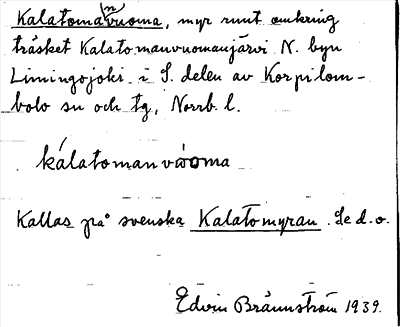 Kalatomanvuoma, myr runt omkring
träsket Kalatomanvuomanjärvi N. byn
Limingojoki i S. delen av Korpilom-
bolo sn och tg, Norrb. l.
kálatomanvùoma
Kallas på svenska Kalatomyran. Se d.o.
Edvin Brännström 1939.